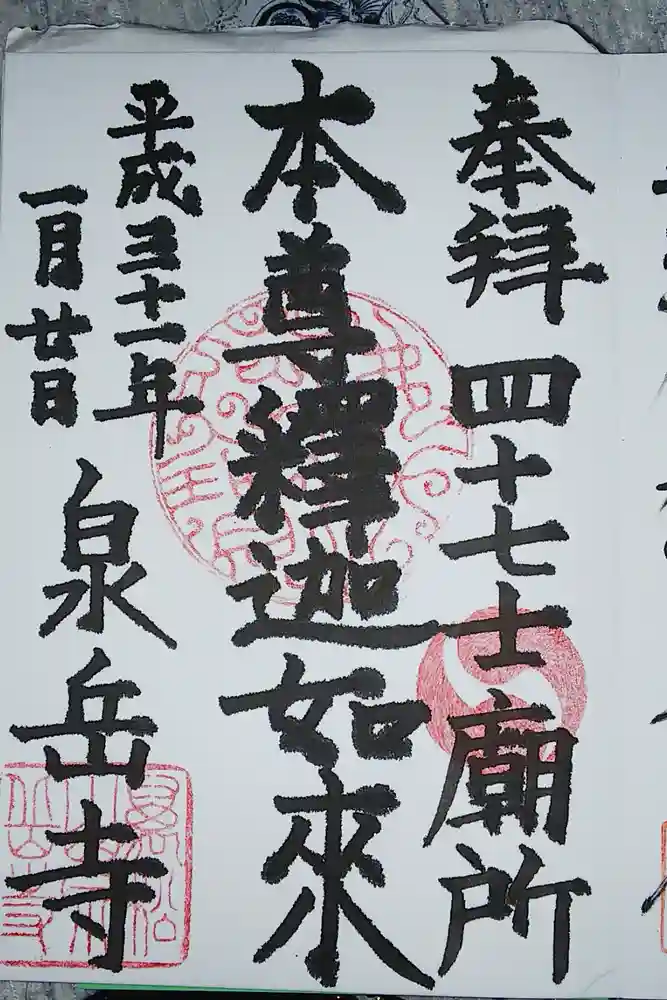 奉拝 四十七士廟所
本尊釋迦如來
平成三十一年
一月廿日
泉岳寺